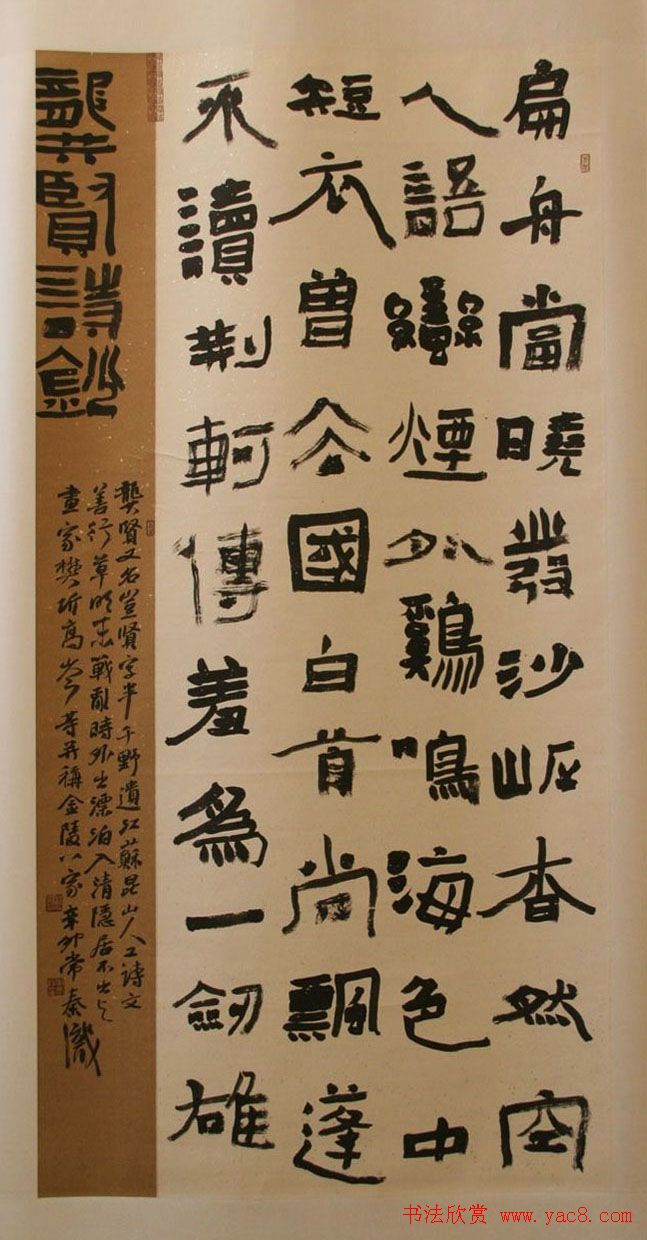 扁舟當曉發沙岸杳然空
人語蠻煙外鷄鳴海色中
短衣曾去國白首尚飄蓬
不讀荊軻傳羞爲一劍雄
龔賢詩鈔
龔賢又名豈賢字半千野遺江蘇昆山人工詩文
善行草明末戰亂時外出漂泊入清隱居不出与
畫家樊圻高岑等并稱金陵八家辛卯常秦識
书法欣赏 www.yac8.com